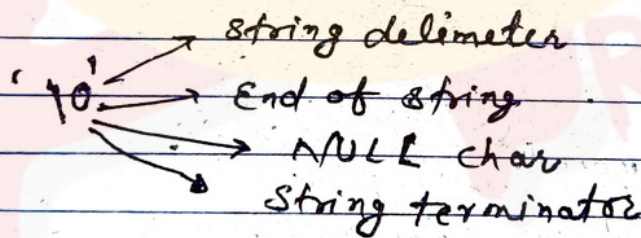 string delimeter
'\0' End of string.
NULL char
String terminator